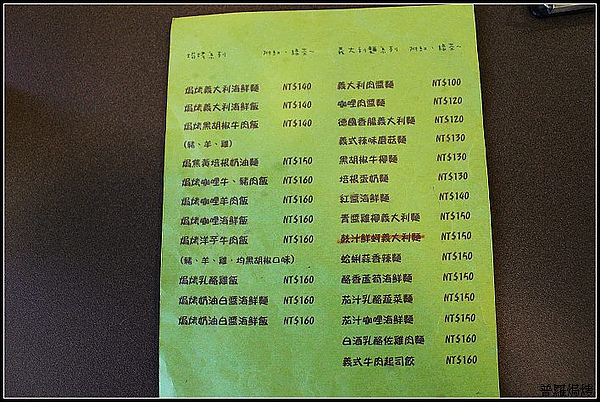 焗烤系列 附紅、綠茶~
焗烤義大利海鮮麵 NT$140
焗烤義大利海鮮飯 NT$140
焗烤黑胡椒牛肉飯 NT$140
(豬、羊、雞)
焗蕉黃培根奶油麵 NT$150
焗烤咖哩牛、豬肉飯 NT$160
焗烤咖哩羊肉飯 NT$160
焗烤咖哩海鮮飯 NT$160
焗烤洋芋牛肉飯 NT$160
(豬、羊、雞,均黑胡椒口味)
焗烤乳酪雞飯 NT$160
焗烤奶油白醬海鮮麵 NT$160
焗烤奶油白醬海鮮飯 NT$160
義大利麵系列 附紅、綠茶~
義大利肉醬麵 NT$100
咖哩肉醬麵 NT$120
德國香腸義大利麵 NT$120
義式辣味蘑菇麵 NT$130
黑胡椒牛柳麵 NT$130
培根蛋奶麵 NT$130
紅醬海鮮麵 NT$140
青醬雞柳義大利麵 NT$150
豉汁鮮蚵義大利麵 NT$150
蛤蜊蒜香辣麵 NT$150
酪香蘆筍海鮮麵 NT$150
茄汁乳酪蔬菜麵 NT$150
茄汁咖哩海鮮麵 NT$150
白酒乳酪佐雞肉麵 NT$160
義式牛肉起司餃 NT$160
普羅焗烤